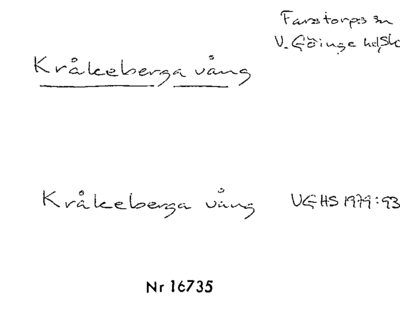 Farstorps sn
V. Göinge hd, Sk
Kråkeberga vång
Kråkeberga vång VGHS 1979:93
Nr 16735